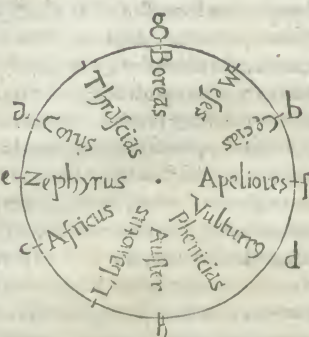 g
Boreas
Meſes
b
Cecias
f
Apeliotes
d
Vulturꝯ
Phenicias
h
Auſter
Libanotus
c
Africus
e
Zephyrus
a
Corus
Thraſcias